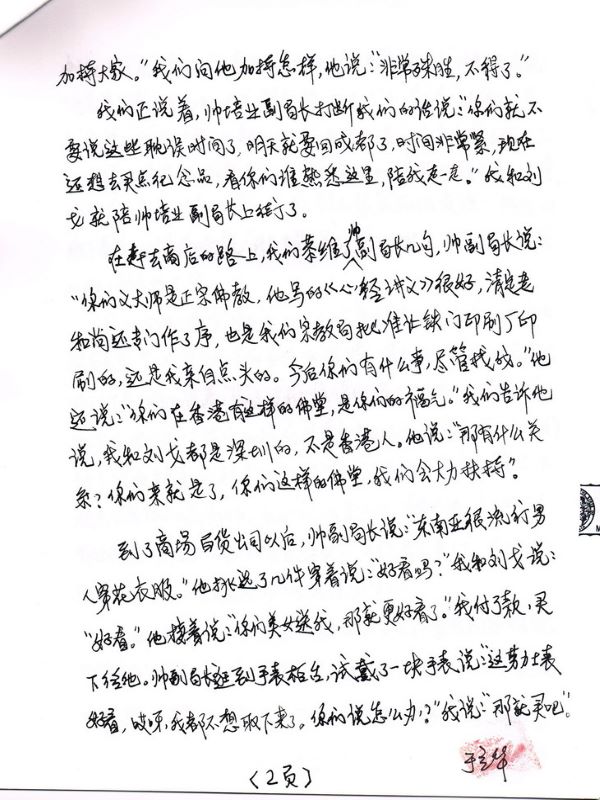 加持大家。”我们问他加持怎样，他说：“非常殊胜，不得了。”
我们正说着，帅培业副局长打断我们的话说：“你们就不
要说这些耽误时间了，明天就要回成都了，时间非常紧，现在
还想去买点纪念品，看你们谁熟悉这里，陪我走一走。”我和刘
戈就陪帅培业副局长上街了。
在去商店的路上，我们恭维了帅副局长几句，帅副局长说：
“你们义大师是正宗佛教，他写的《心经讲义》很好，清定老
和尚还专门作了序，也是我们宗教局批准让铁门印刷厂印
刷的，还是我亲自点头的。今后你们有什么事，尽管找我。”他
还说：“你们在香港有这样的佛堂，是你们的福气。”我们告诉他
说，我和刘戈都是深圳的，不是香港人。他说：“那有什么关
系？你们来就是了，你们这样的佛堂，我们会大力扶持”。
到了商场百货公司以后，帅副局长说：“东南亚很流行男
人穿花衣服。”他挑选了几件穿着说：“好看吗？”我和刘戈说：
“好看。”他接着说：“你们美女送我，那就更好看了。”我付了款，买
下给他。帅副局长逛到手表柜台，试戴了一块手表说：“这劳力士表
好看，哎呀，我都不想取下来了。你们说怎么办？”我说：“那就买吧”。
于立华
（2页）